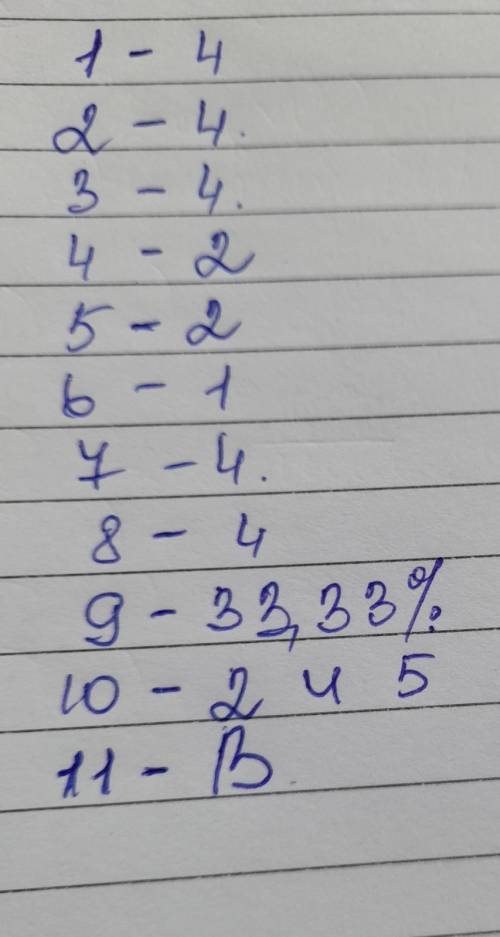 1 - 4
2 - 4.
3 - 4.
4 - 2
5 - 2
6 - 1
7 - 4.
8 - 4
9 - 33,33%
10 - 2 и 5
11 - В